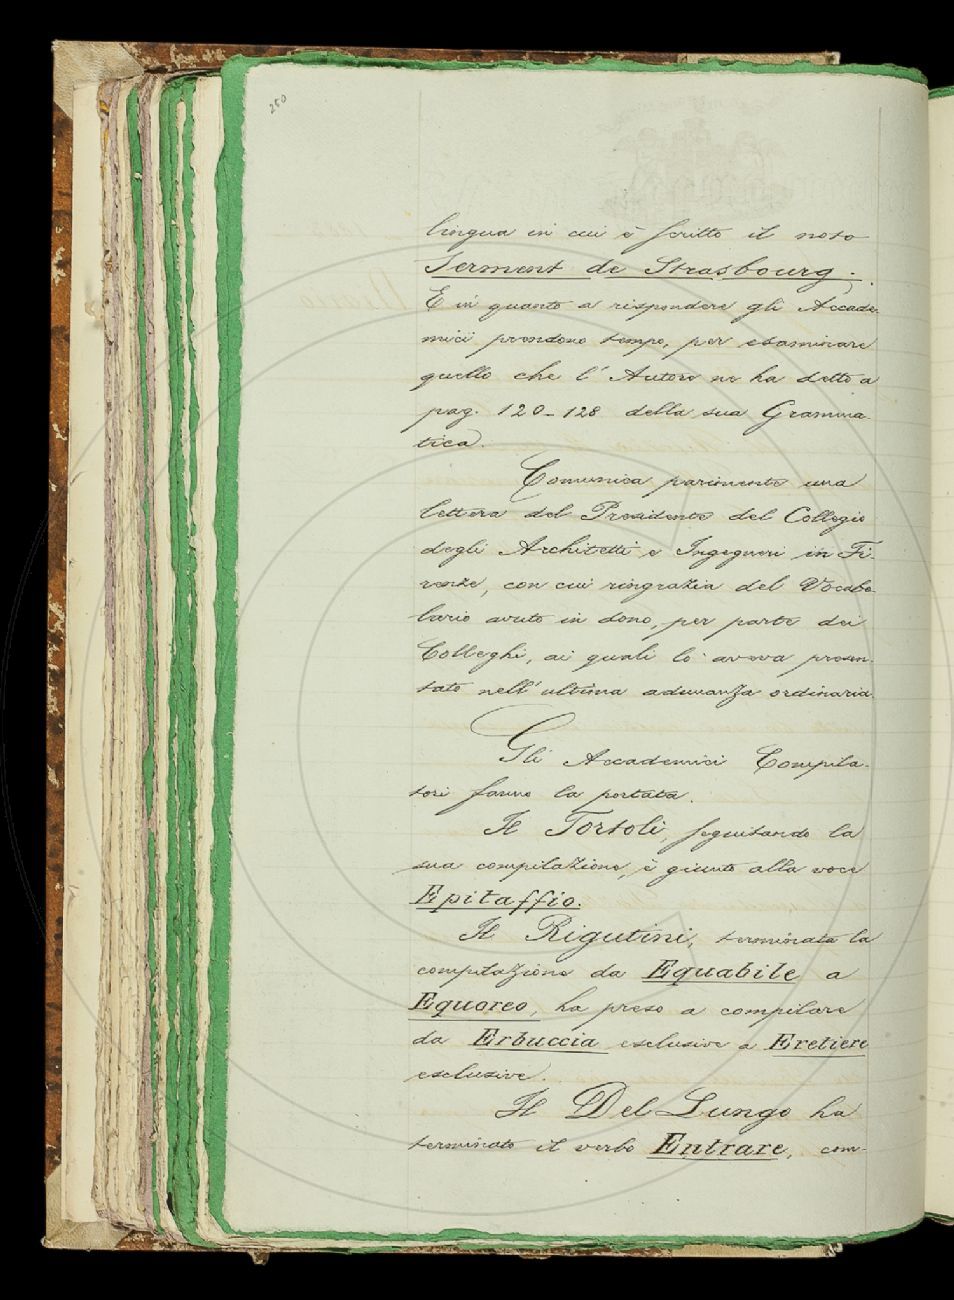 250
lingua in cui è scritto il noto
Serment de Strasbourg.
E in quanto a rispondere gli Accade-
mici prendono tempo, per esaminare
quello che l'Autore ne ha detto a
pag. 120-128 della sua Gramma-
tica.
Comunica parimente una
lettera del Presidente del Collegio
degli Architetti e Ingegneri in Fi-
renze, con cui ringrazia del Vocabo-
lario avuto in dono, per parte dei
Colleghi, ai quali lo aveva presen-
tato nell'ultima adunanza ordinaria.
Gli Accademici Compila-
tori fanno la portata.
Il Tortoli, seguitando la
sua compilazione, è giunto alla voce
Epitaffio.
Il Rigutini, terminata la
compilazione da Equabile a
Equoreo, ha preso a compilare
da Erbuccia esclusive a Eretiere
esclusive.
Il Del Lungo ha
terminato il verbo Entrare, com-